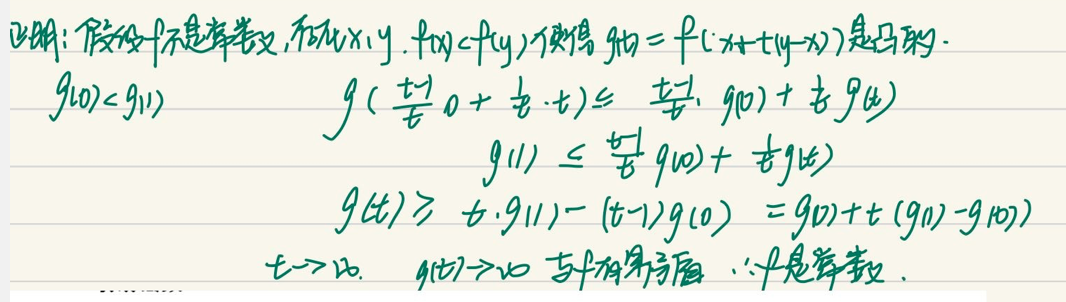 证明: 假设f不是常数, 存在x,y. f(x)<f(y) 使得 g(t) = f(x+t(y-x)) 是凸的.
g(0)<g(1) g( \frac{t-1}{t} 0 + \frac{1}{t} · t) ≤ \frac{t-1}{t} · g(0) + \frac{1}{t} g(t)
g(1) ≤ \frac{t-1}{t} g(0) + \frac{1}{t} g(t)
g(t) ≥ t·g(1) - (t-1)g(0) = g(0)+t(g(1)-g(0))
t→∞. g(t)→∞ 与f有界矛盾 ∴f是常数.